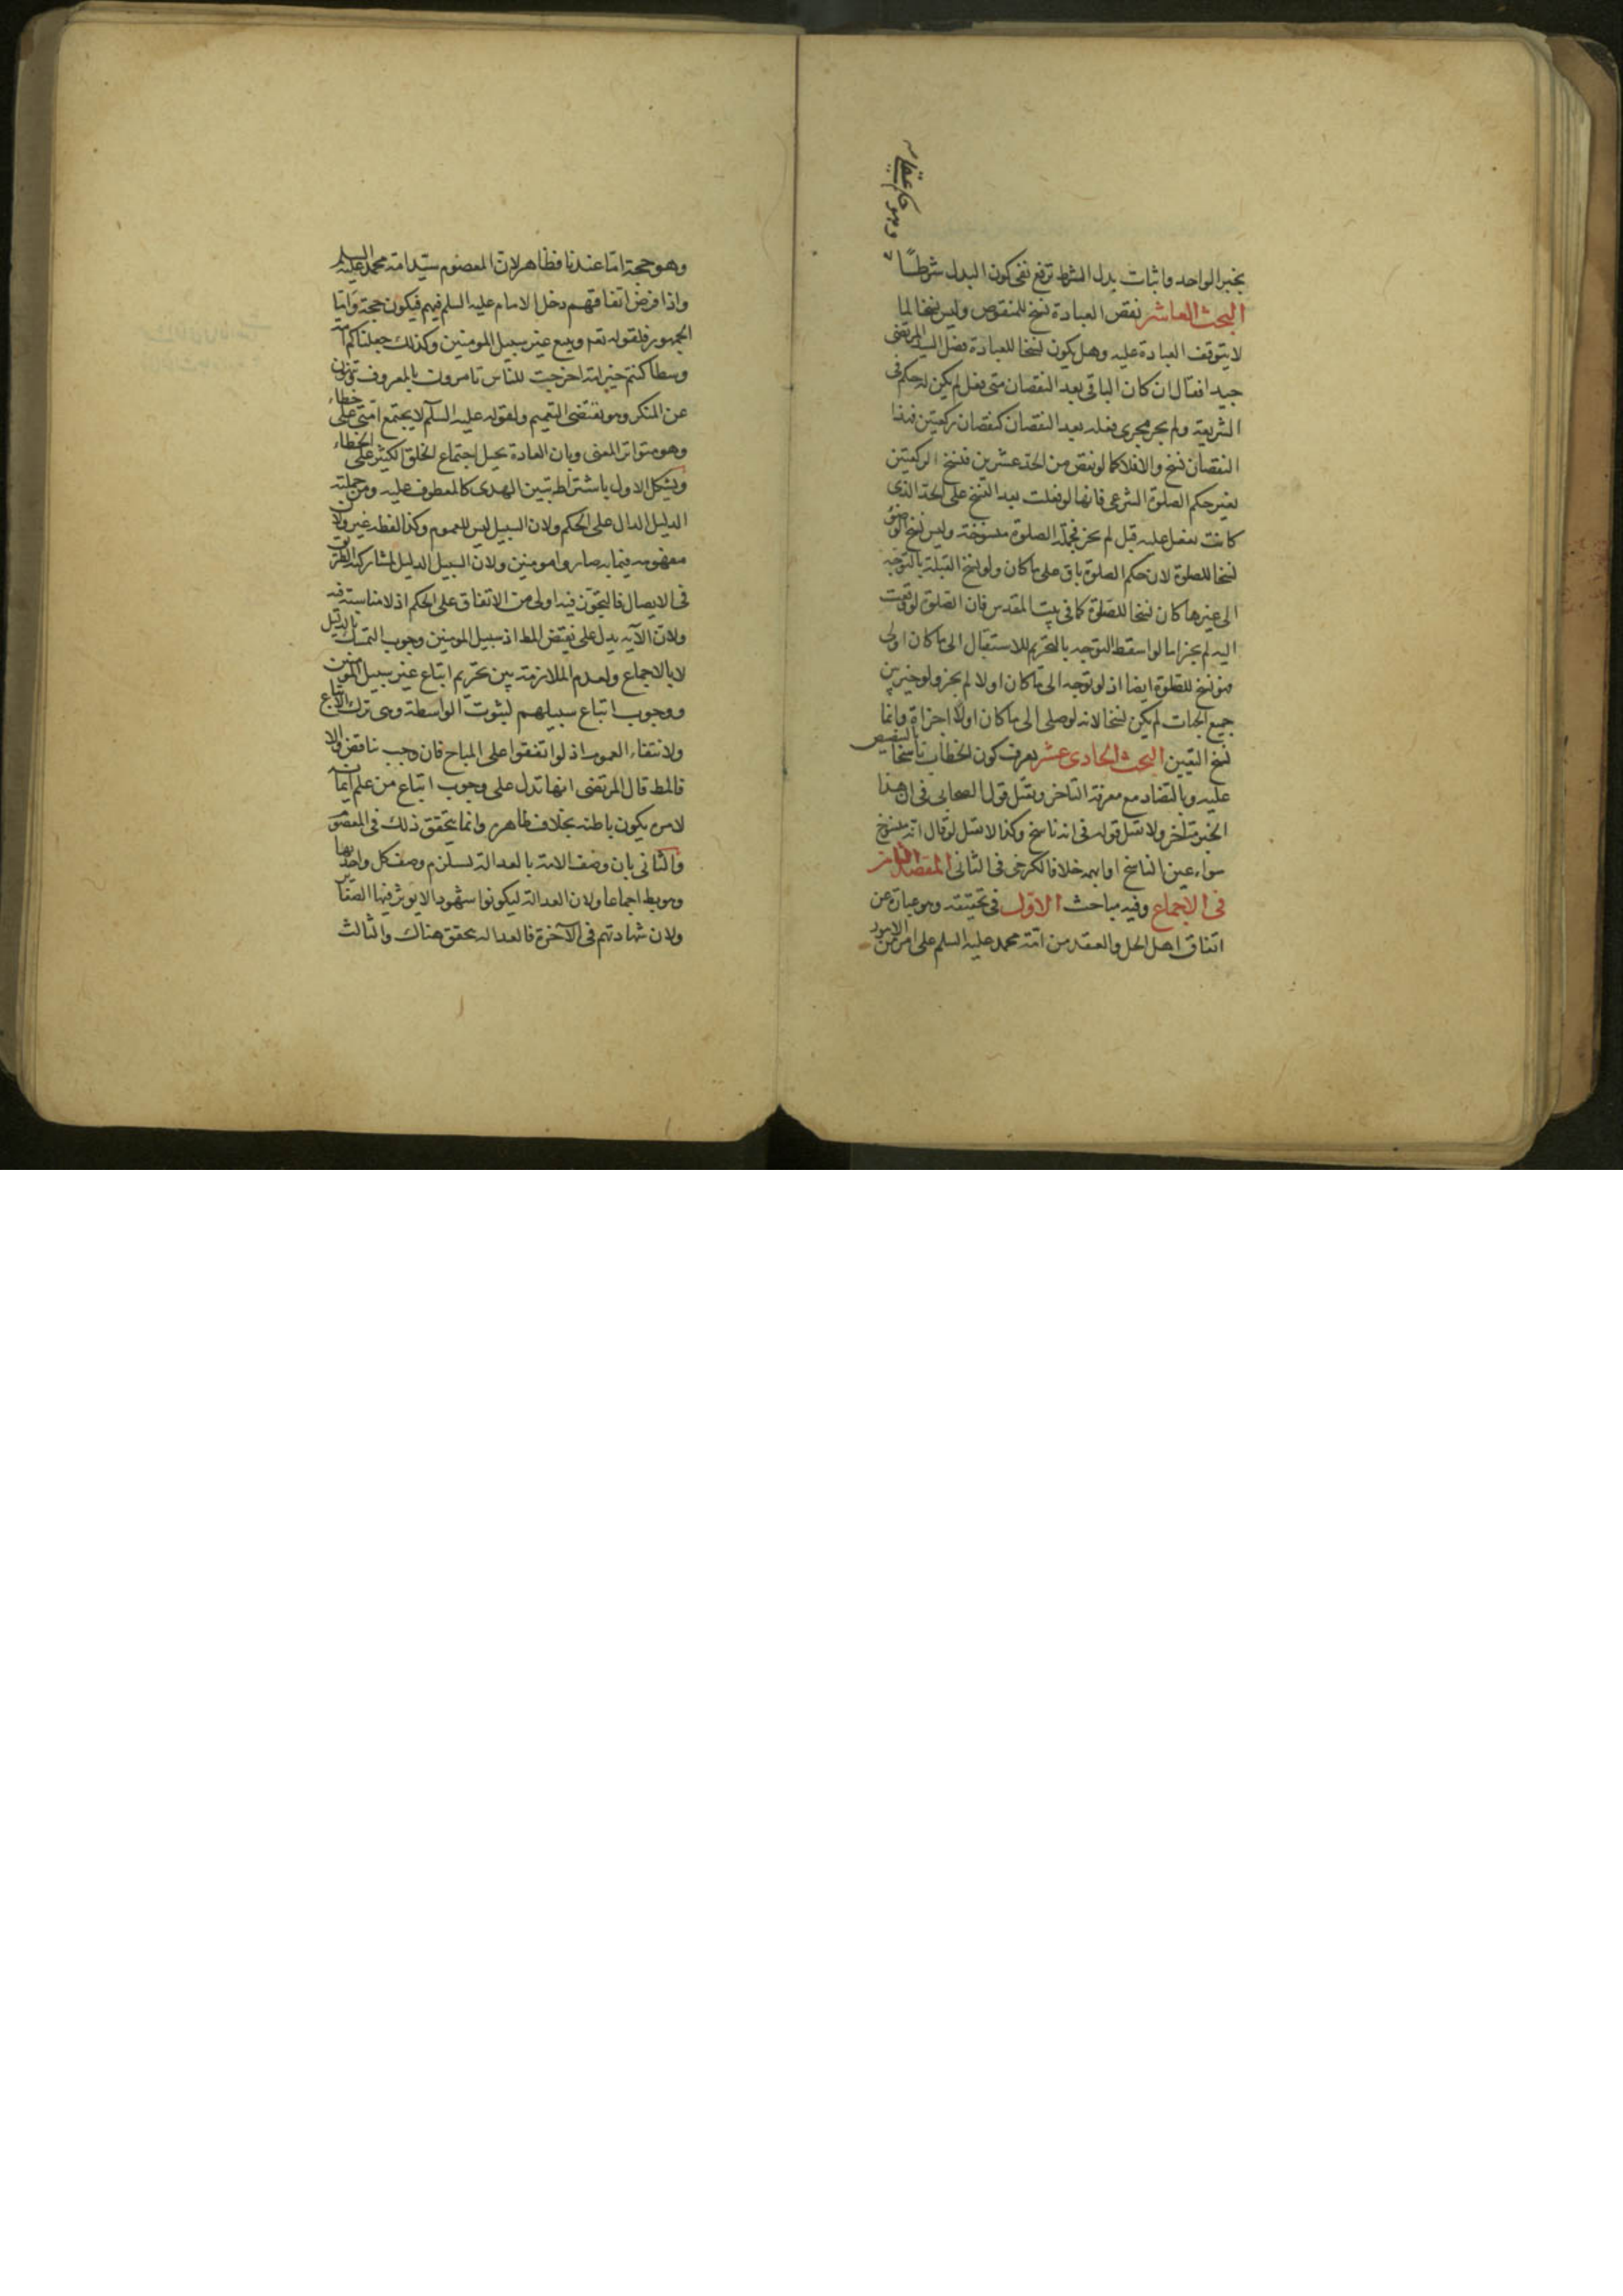 وهو حكم عقلى
بخبر الواحد واثبات بدل الشرط ترفع نفى كون البدل شرطاً
البحث العاشر نقص العبادة نسخ للمنقوص وليس نسخا لما
لا يتوقف العبادة عليه وهل يكون نسخا للعبادة فصل السيد المرتضى
جيدا فقال ان كان الباقى بعد النقصان متى فعل لم يكن له حكم فى
الشريعة ولم يجر مجرى فعله بعد النقصان كنقصان ركعتين فهذا
النقصان نسخ والا فلا كما لو نقص من الحد عشرين فنسخ الركعتين
يغير حكم الصلوة الشرعى فانها لو فعلت بعد النسخ على الحد الذى
كانت تفعل عليه قبل لم يجز فجملة الصلوة منسوخة وليس نسخ الوضوء
نسخا للصلوة لان حكم الصلوة باق على ما كان ولو نسخ القبلة بالتوجه
الى غيرها كان نسخا للصلوة كما فى بيت المقدس فان الصلوة لو وقعت
اليه لم يجز اما لو اسقط التوجه بالتحريم للاستقبال الى ما كان اولى
فهو نسخ للصلوة ايضا اذ لو توجه الى ما كان اولا لم يجز ولو خير بين
جميع الجهات لم يكن نسخا لانه لو صلى الى ما كان اولا اجزاه وانما
نسخ التعيين البحث الحادى عشر يعرف كون الخطاب ناسخا بالتنصيص
عليه وبالتضاد مع معرفة التاخر ويقبل قول الصحابى فى ان هذا
الخبر متاخر ولا يقبل قوله فى انه ناسخ وكذا لا يقبل لو قال انه منسوخ
سواء عين الناسخ او ابهمه خلافا للكرخى فى الثانى المقصد الثامن
فى الاجماع وفيه مباحث الاول فى تحقيقه وهو عبارة عن
اتفاق اهل الحل والعقد من امة محمد عليه السلم على امر من الامور
وهو حجة اما عندنا فظاهر لان المعصوم سيد امة محمد عليه السلم
واذا فرض اتفاقهم دخل الامام عليه السلم فيهم فيكون حجة واما
الجمهور فلقوله تعم ويتبع غير سبيل المومنين وكذلك جعلناكم امة
وسطا كنتم خير امة اخرجت للناس تامرون بالمعروف وتنهون
عن المنكر وهو يقتضى التعميم ولقوله عليه السلم لا يجتمع امتى على خطاء
وهو متواتر المعنى وبان العادة يحيل اجتماع الخلق الكثير على الخطاء
ويشكل الاول باشتراط تبين الهدى كالمعطوف عليه ومن جملته
الدليل الدال على الحكم ولان السبيل ليس للعموم وكذا لفظه غير ولان
مفهومه فيما به صاروا مومنين ولان السبيل الدليل لمشاركته الطريق
فى الايصال فالتجوز فيه اولى من الاتفاق على الحكم اذ لا مناسبة فيه
ولان الآية يدل على نقيض المط اذ سبيل المومنين وجوب التمسك بالدليل
لا بالاجماع ولعدم الملازمة بين تحريم اتباع غير سبيل المومنين
ووجوب اتباع سبيلهم لثبوت الواسطة وهى ترك الاتباع
ولانتفاء العموم اذ لو اتفقوا على المباح فان وجب تناقض والا
فالمط قال المرتضى انها تدل على وجوب اتباع من علم ايمانه
لا من يكون باطنه بخلاف ظاهره وانما يتحقق ذلك فى المعصوم
والثانى بان وصف الامة بالعدالة يستلزم وصف كل واحد بها
وهو بط اجماعا ولان العدالة ليكونوا شهودا لا يوثر فيها الصغاير
ولان شهادتهم فى الآخرة فالعدالة يتحقق هناك والثالث